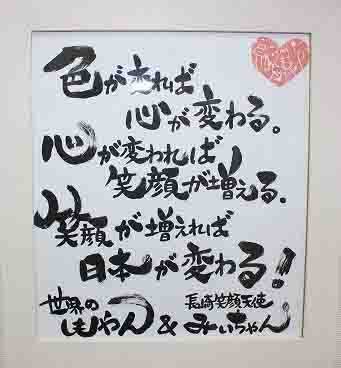 色が変れば
心が変わる。
心が変われば
笑顔が増える.
笑顔が増えれば
日本が変わる!
世界の 長崎笑顔天使
しもやん & みいちゃん